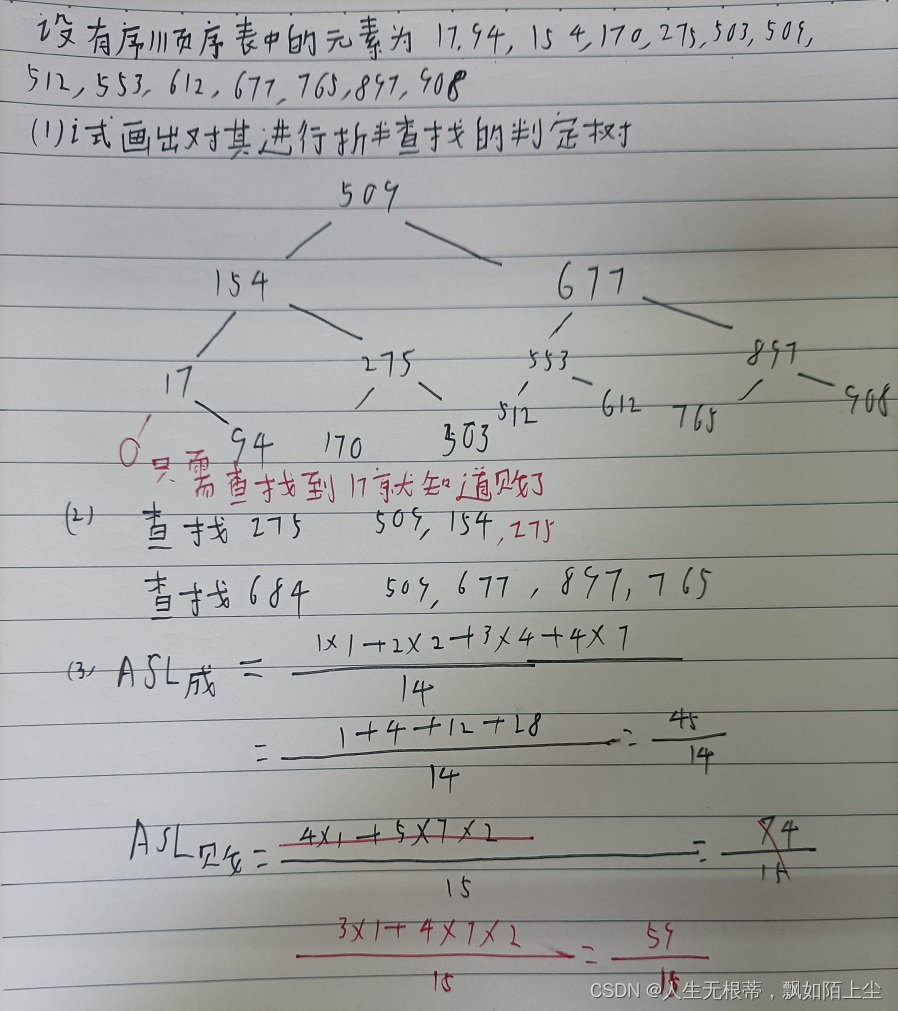 设有序顺序表中的元素为 17,94, 154,170,275,503,509,
512,553, 612, 677, 765,897,908
(1)试画出对其进行折半查找的判定树
509
154 677
17 275 553 897
94 170 503 512 612 765 908
只需查找到17就知道败了
(2) 查找 275 509, 154, 275
查找 684 509, 677, 897, 765
(3) ASL成 = 1×1+2×2+3×4+4×7 / 14
= 1+4+12+28 / 14 = 45 / 14
ASL败 = 4×1+5×7×2 / 15 = 74 / 15
3×1+4×7×2 / 15 = 59 / 15
CSDN @人生无根蒂,飘如陌上尘